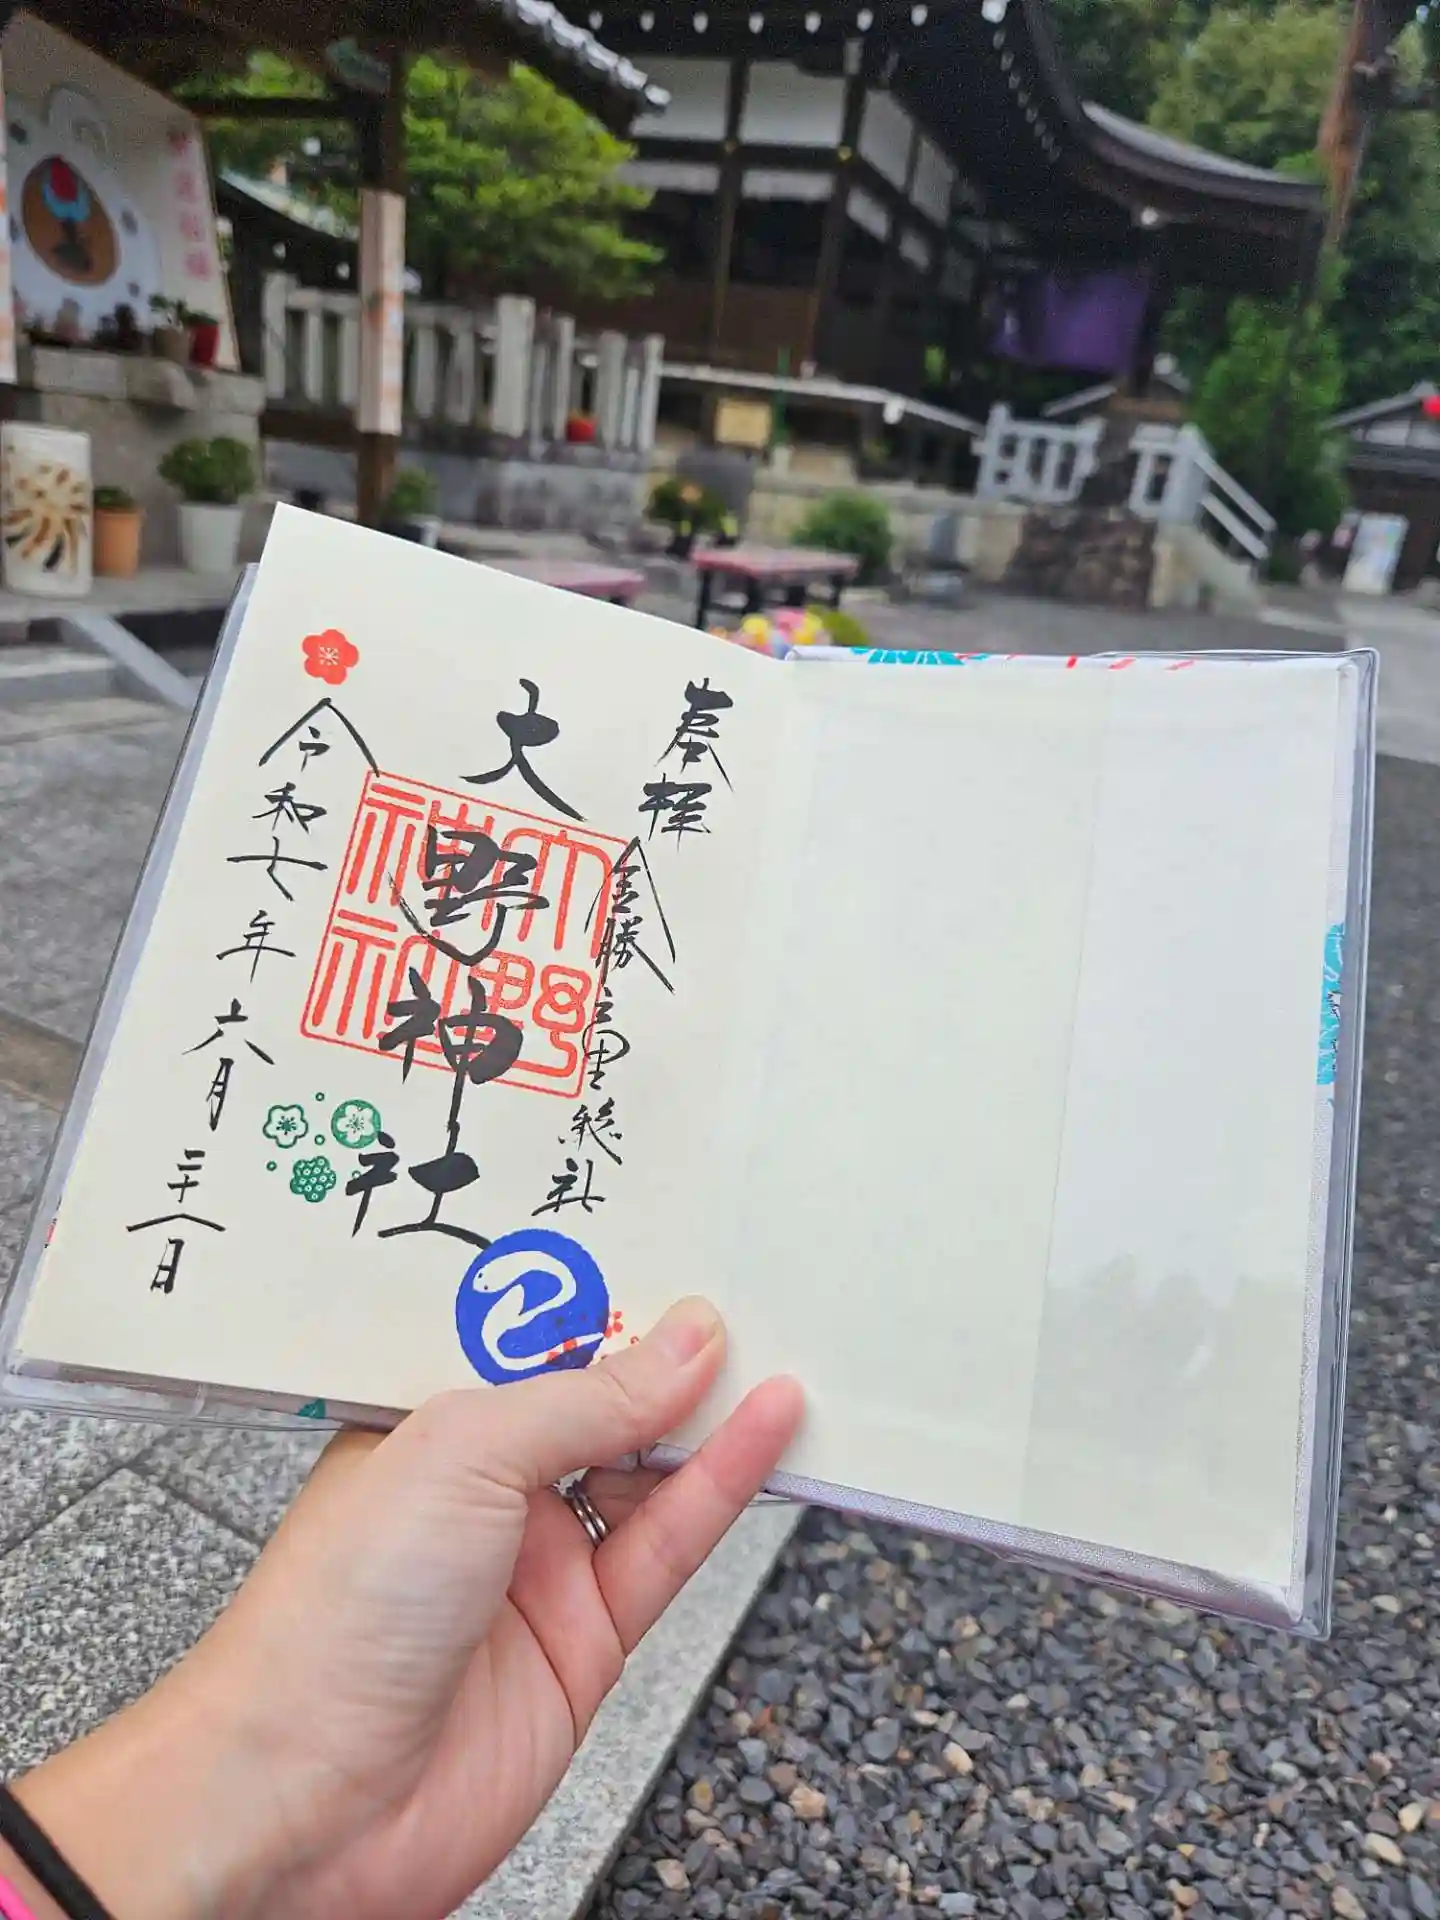 奉拝
金勝之里総社
大野神社
大野
神社
令和七年六月二十八日